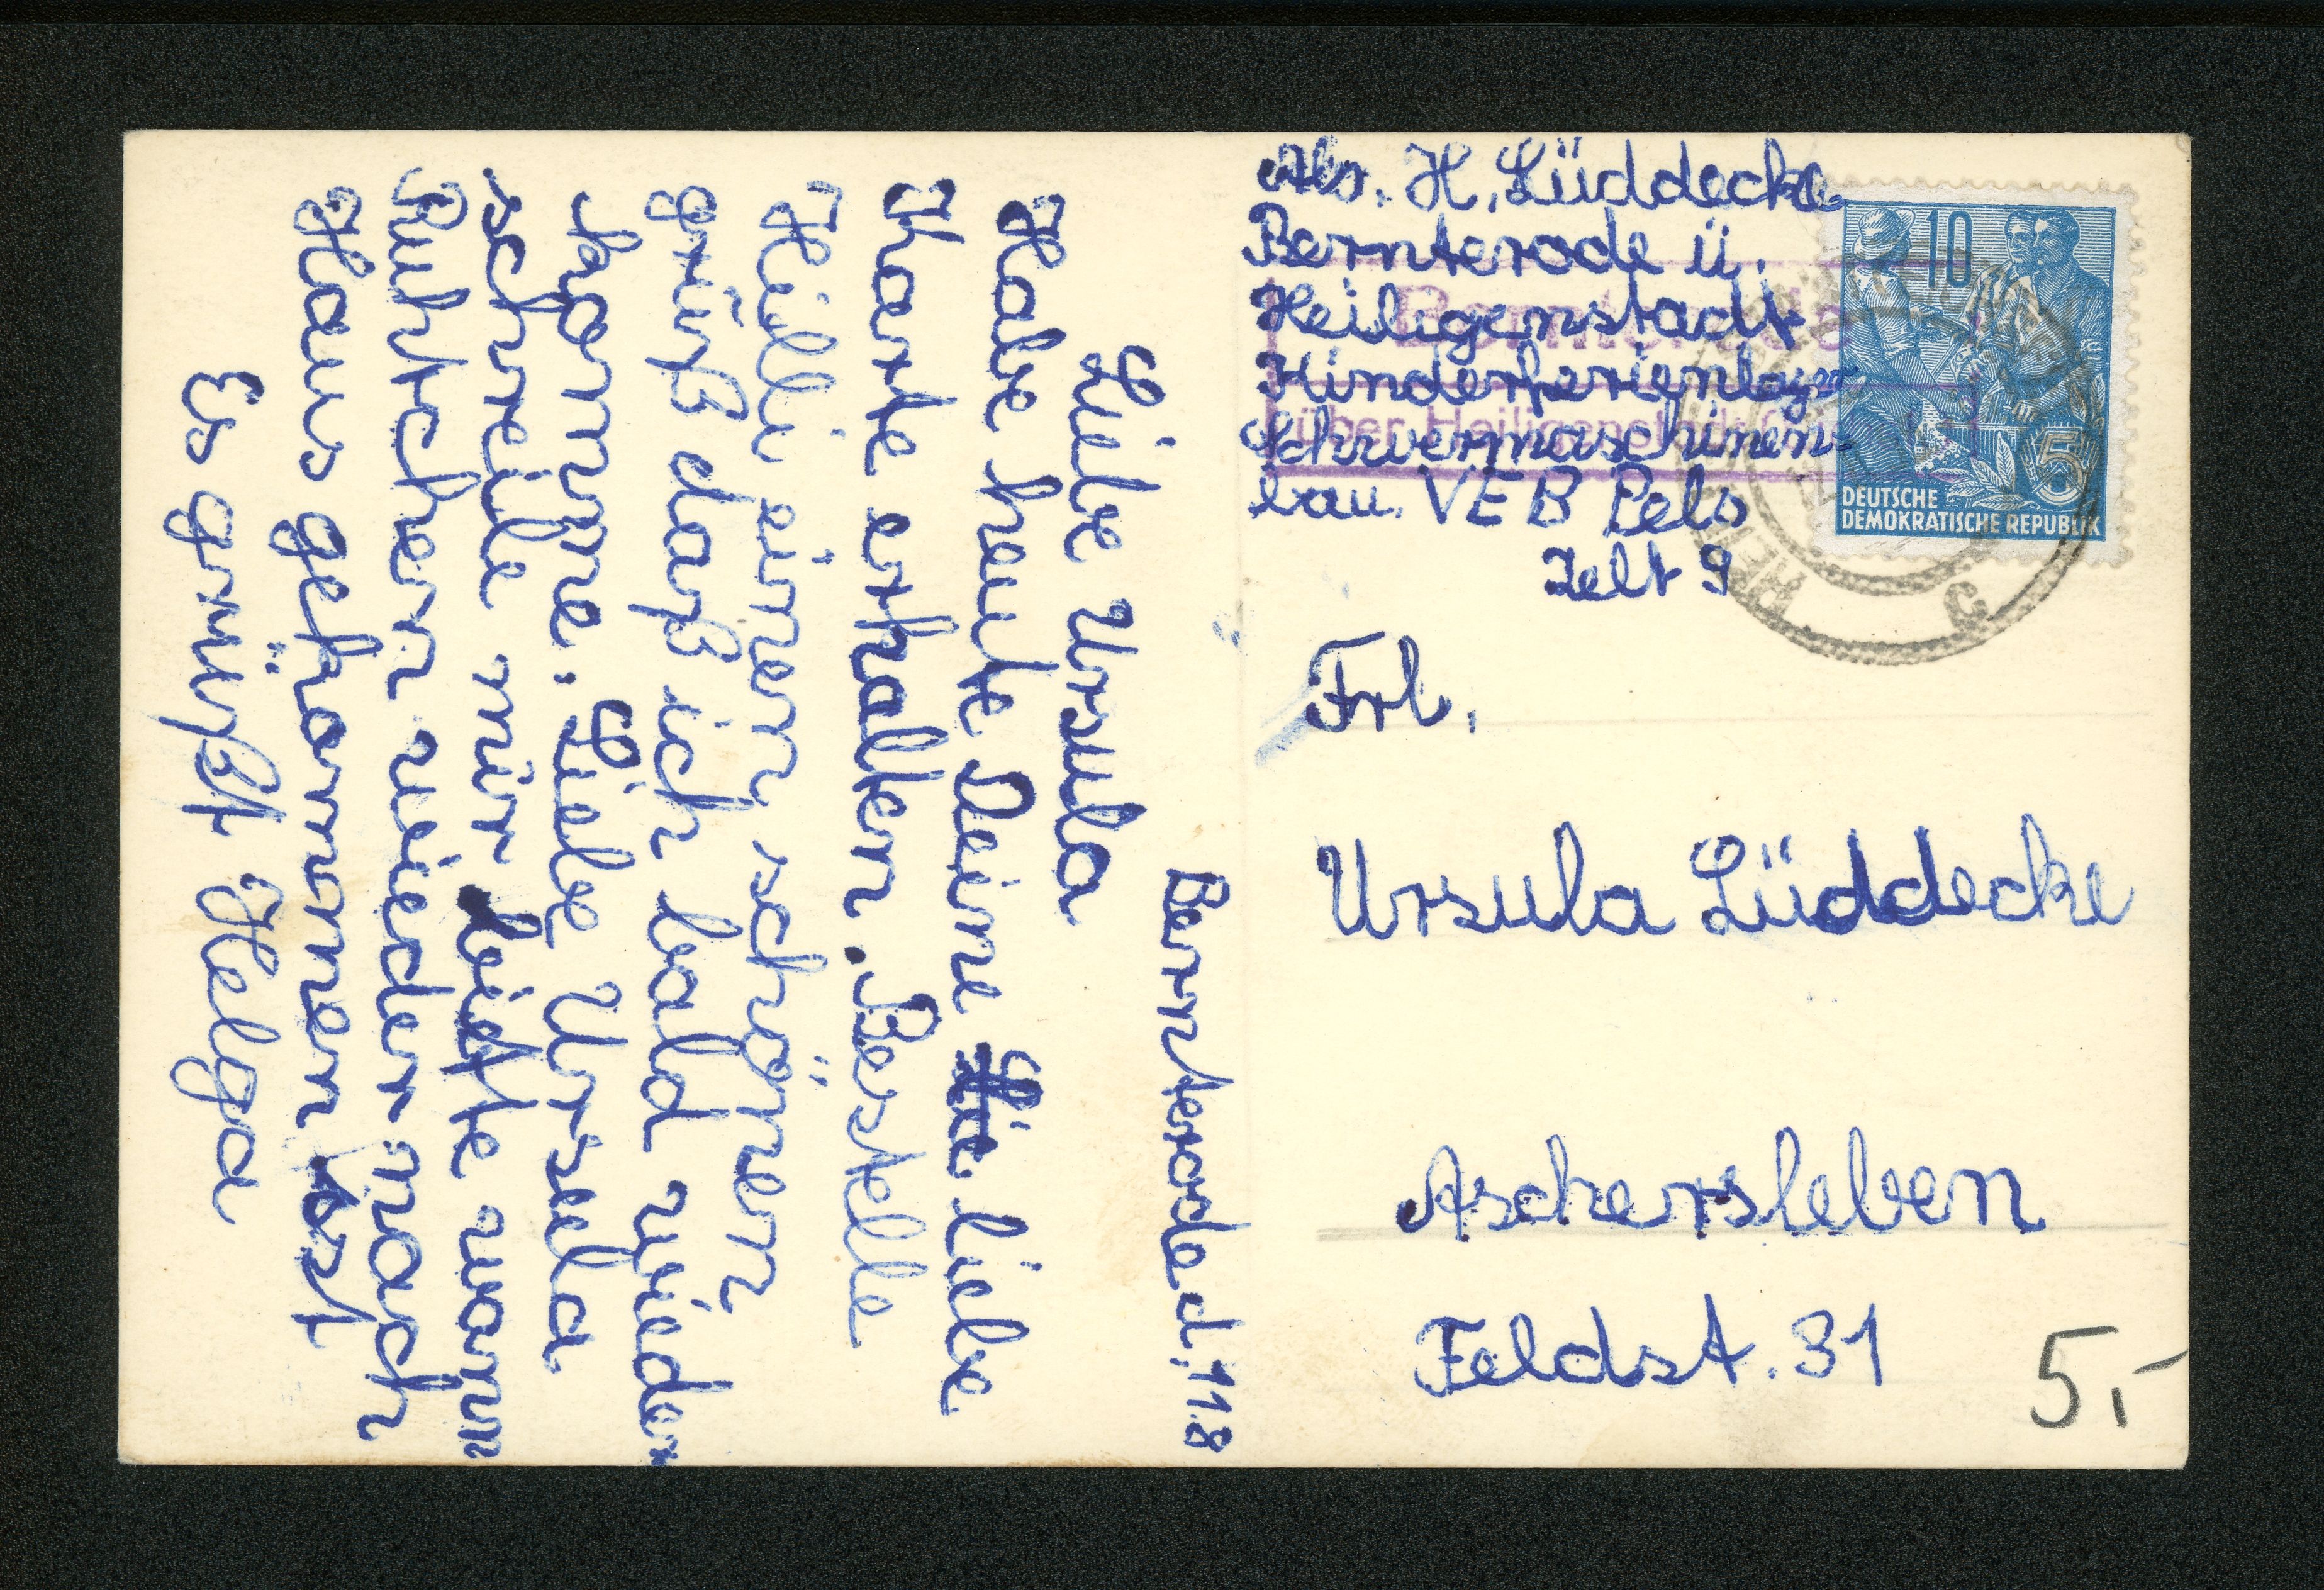 Bernterode d. 11.8
Liebe Ursula
Habe heute Deine Lie liebe
Kharte erhalten. Bestelle
Heili einen schönen
grüß daß ich bald wieder
komme. Liebe Ursela
schreibe mir bitte wann
Ruhtchen wieder nach
Haus gekommen ist
Es grüßt Helga
Abs. H. Lüddecke
Bernterode ü.
Heiligenstadt
Kinderferienlager
Schwermaschinen-
bau. VEB Pels
Zelt 9
Bernterode
über Heiligenstadt
10
5
DEUTSCHE
DEMOKRATISCHE REPUBLIK
HEI
Frl.
Ursula Lüddecke
Aschersleben
Feldst. 31
5,-